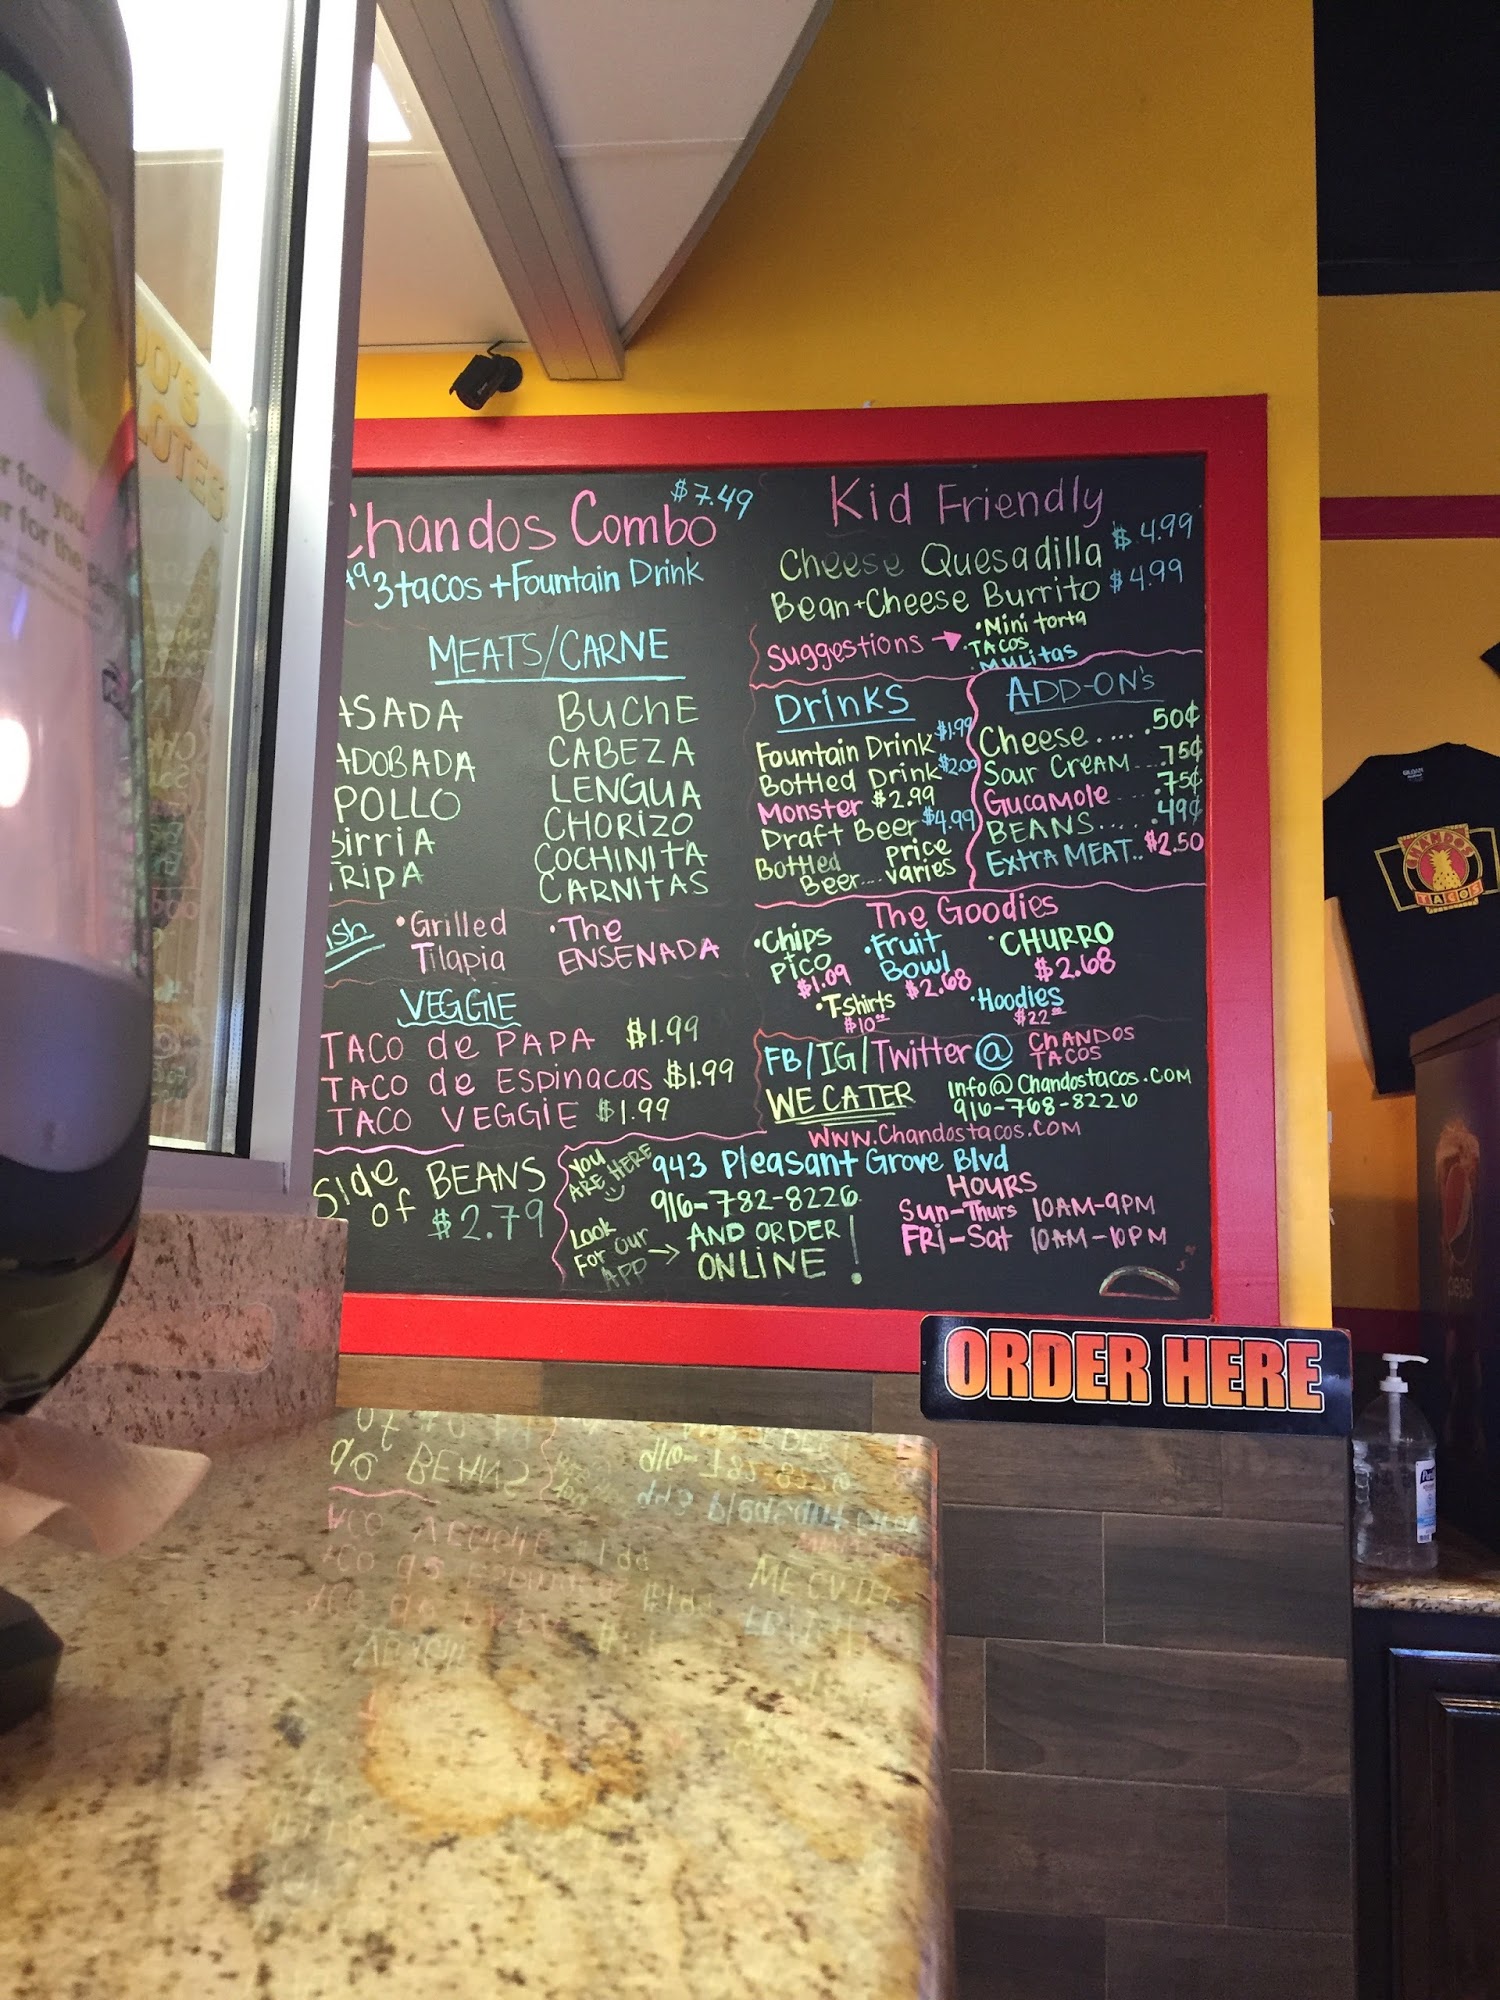 Chandos Combo $7.49
3 tacos + Fountain Drink
MEATS/CARNE
ASADA
ADOBADA
POLLO
BirriA
TRIPA
BUCHE
CABEZA
LENGUA
CHORIZO
COCHINITA
CARNITAS
• Grilled Tilapia
• The ENSENADA
VEGGIE
TACO de PAPA $1.99
TACO de ESpinacas $1.99
TACO VEGGIE $1.99
Side of BEANS
$2.79
Kid Friendly
Cheese Quesadilla $4.99
Bean + Cheese Burrito $4.99
Suggestions
• Mini torta
• TACOS
• MULitas
DrinKS
Fountain Drink $1.99
Bottled Drink $2.00
Monster $2.99
Draft Beer $4.99
Bottled Beer.... price varies
ADD-ON's
Cheese..... .50¢
Sour CREAM.... .75¢
Gucamole .... .75¢
BEANS.... .49¢
ExtrA MEAT.. $2.50
The Goodies
• Chips + Pico $1.09
• Fruit Bowl $2.68
• CHURRO $2.68
• T-shirts $10.00
• Hoodies $22.00
FB/IG/Twitter@ CHANDOS TACOS
WE CATER
Info@Chandostacos.com
916-768-8226
www.Chandostacos.com
You ARE HERE
943 Pleasant Grove Blvd
916-782-8226
Look For our APP
AND ORDER ONLINE!
HOURS
Sun-Thurs 10AM-9PM
FRI-Sat 10AM-10PM
ORDER HERE
CHANDOS
TACOS